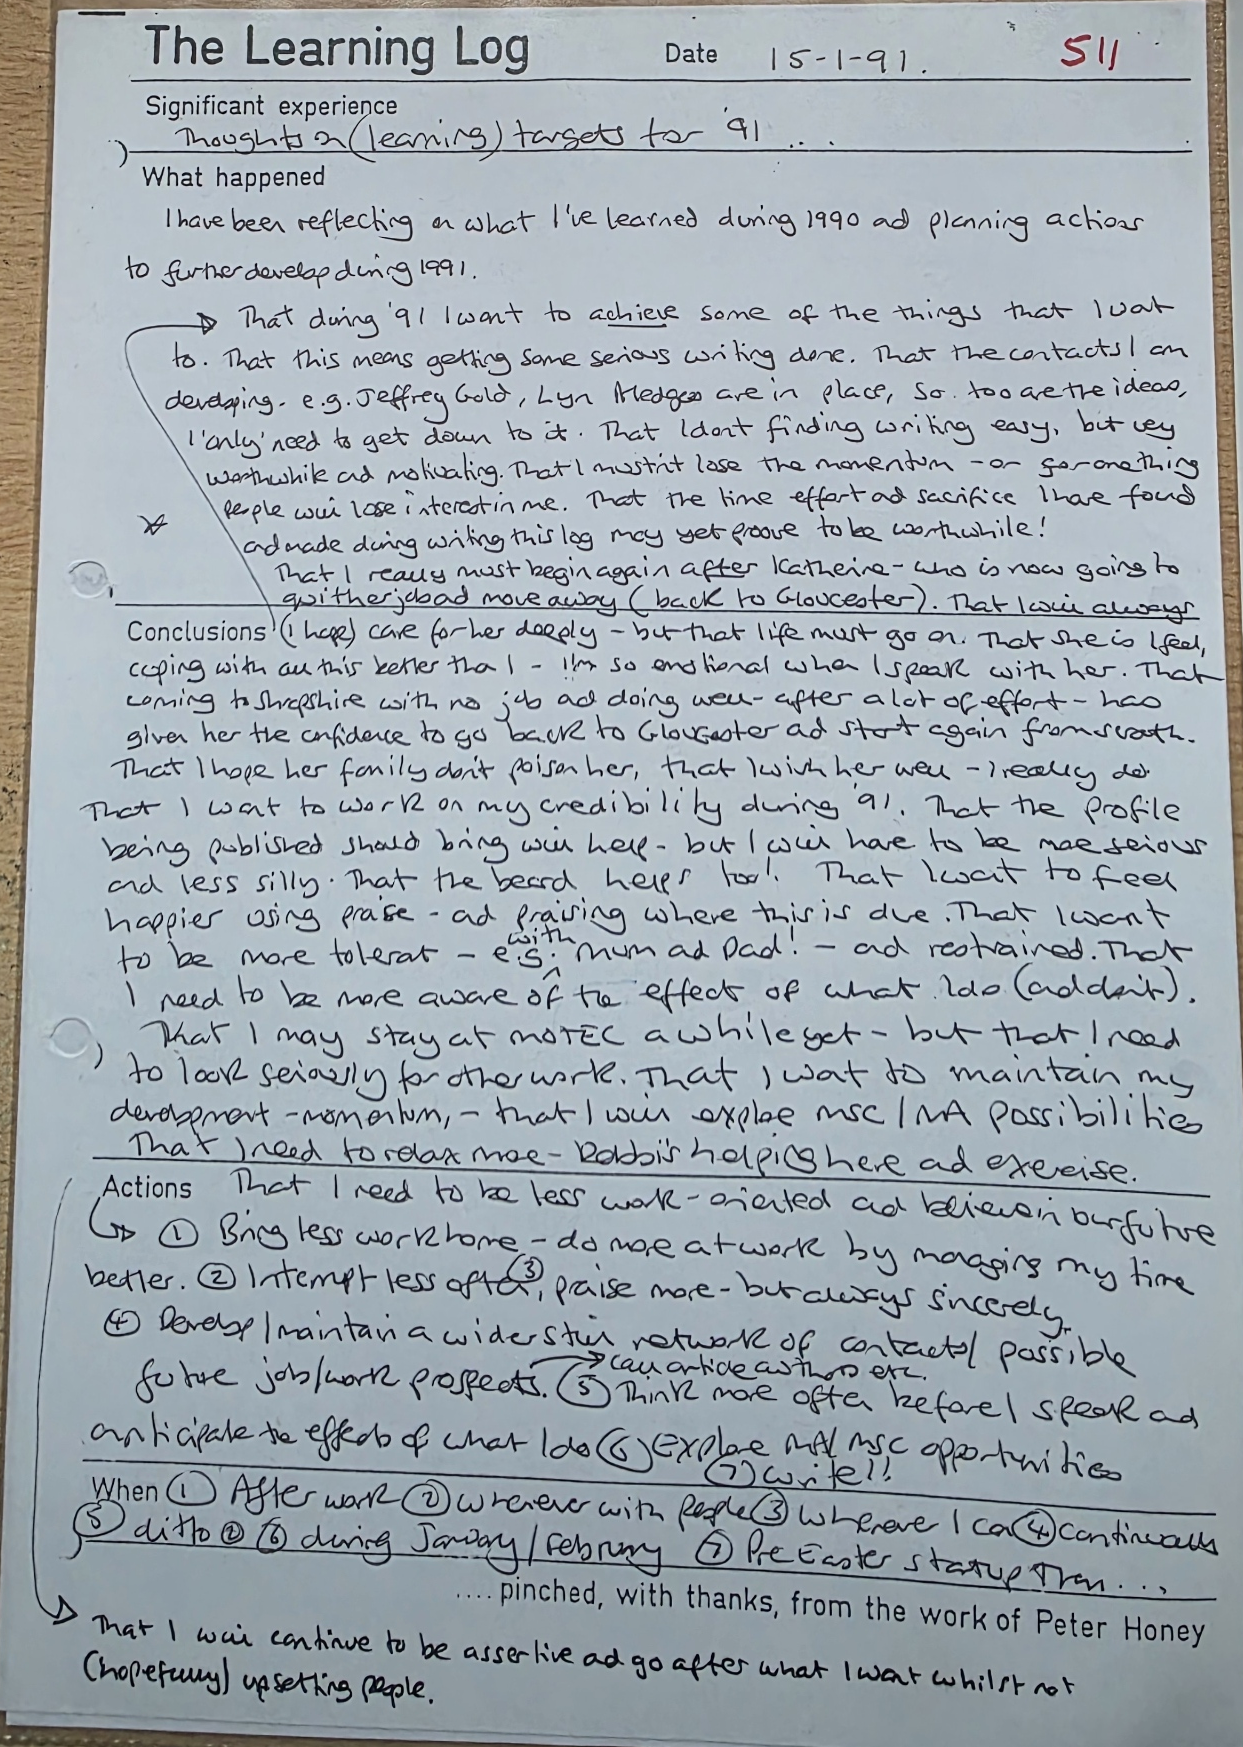 The Learning Log Date 15-1-91. 511
Significant experience
Thoughts on (learning) targets for '91 ...
What happened
I have been reflecting on what I've learned during 1990 ad planning actions
to further develop during 1991.
That during '91 I want to achieve some of the things that I wat
to. That this means getting some serious writing done. That the contacts I am
developing - e.g. Jeffrey Gold, Lyn are in place, so too are the ideas,
I 'only' need to get down to it. That I dont finding writing easy, but very
worthwhile ad motivating. That I mustn't lose the momentum - or for one thing
people will lose interest in me. That the time effort ad sacrifice I have found
ad made during writing this log may yet proove to be worthwhile!
That I really must begin again after Katherine - who is now going to
quit her job ad move away (back to Gloucester). That I will always
Conclusions (I hope) care for her deeply - but that life must go on. That she is I feel,
coping with all this better tha I - I'm so emotional when I speak with her. That
coming to Shropshire with no job ad doing well - after a lot of effort - has
given her the confidence to go back to Gloucester ad start again from scratch.
That I hope her family don't poison her, that I wish her well - I really do
That I want to work on my credibility during '91. That the profile
being published should bring will help - but I will have to be more serious
and less silly. That the beard helps too!. That I wat to feel
happier using praise - ad praising where this is due. That I want
to be more tolerat - e.g. with mum ad Dad! - ad restrained. That
I need to be more aware of the effect of what I do (ad don't).
That I may stay at MOTEC a while yet - but that I need
to look seriously for other work. That I wat to maintain my
development - momentum, - that I will explore MSC/MA possibilities
That I need to relax more - Robbi's helping here ad exercise.
Actions That I need to be less work-oriented ad believe in our future
① Bring less work home - do more at work by managing my time
better. ② Interrupt less often, ③ praise more - but always sincerely.
④ Develop/maintain a wider still network of contacts/possible
future job/work prospects. → call article authors etc.
⑤ Think more often before I speak ad
anticipate the effects of what I do ⑥ Explore MA/MSC opportunities
⑦ Write!!
When ① After work ② Wherever with people ③ Wherever I can ④ Continually
⑤ ditto ② ⑥ during January/February ⑦ Pre Easter startup Then...,
.... pinched, with thanks, from the work of Peter Honey
That I will continue to be assertive ad go after what I want whilst not
(hopefully) upsetting people.